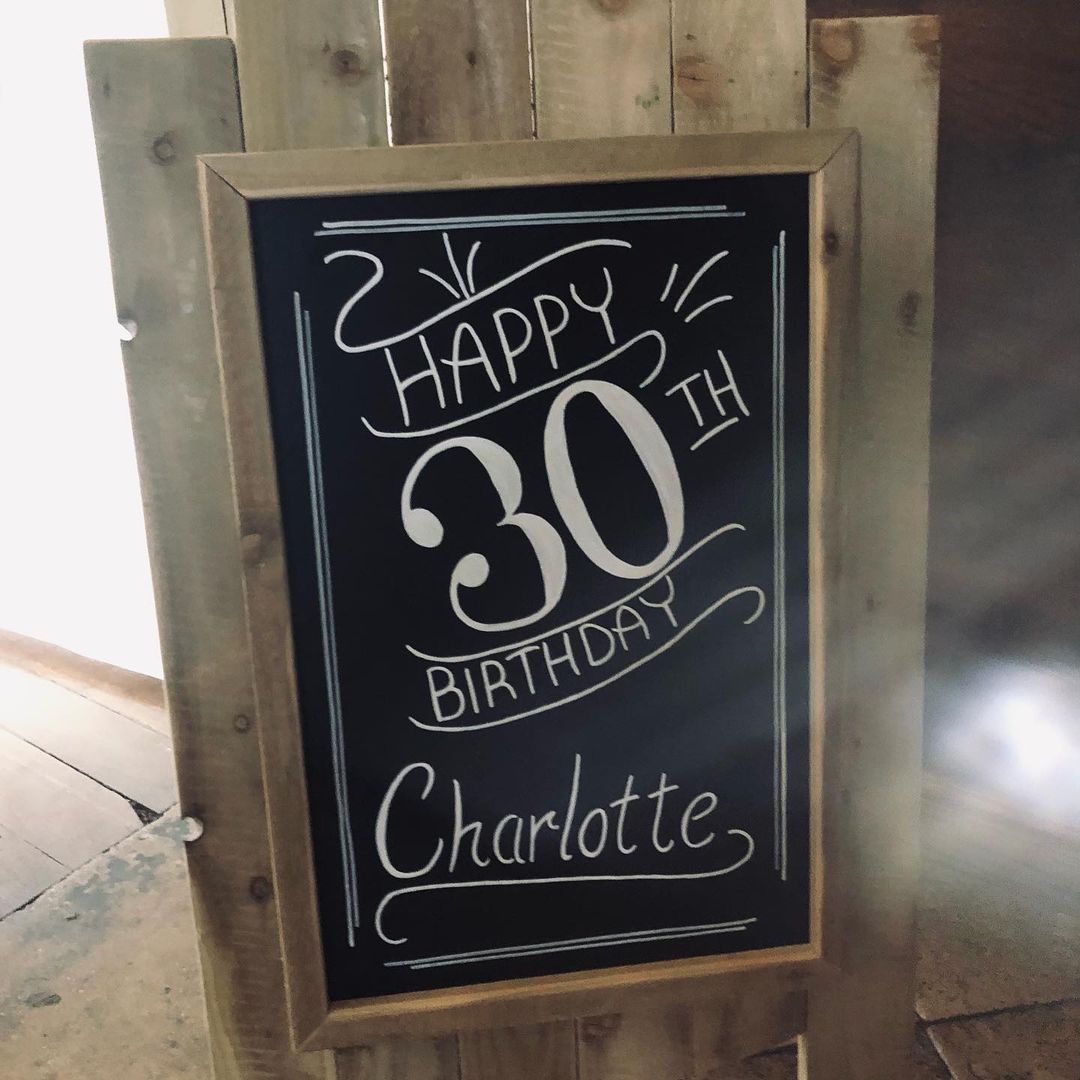 HAPPY
30TH
BIRTHDAY
Charlotte